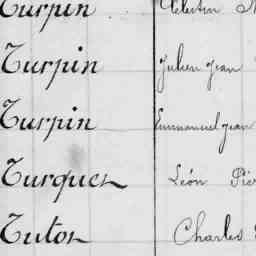 Turpin Célestin
Turpin Julien Jean
Turpin Emmanuel Jean
Turquet Léon
Tutos Charles